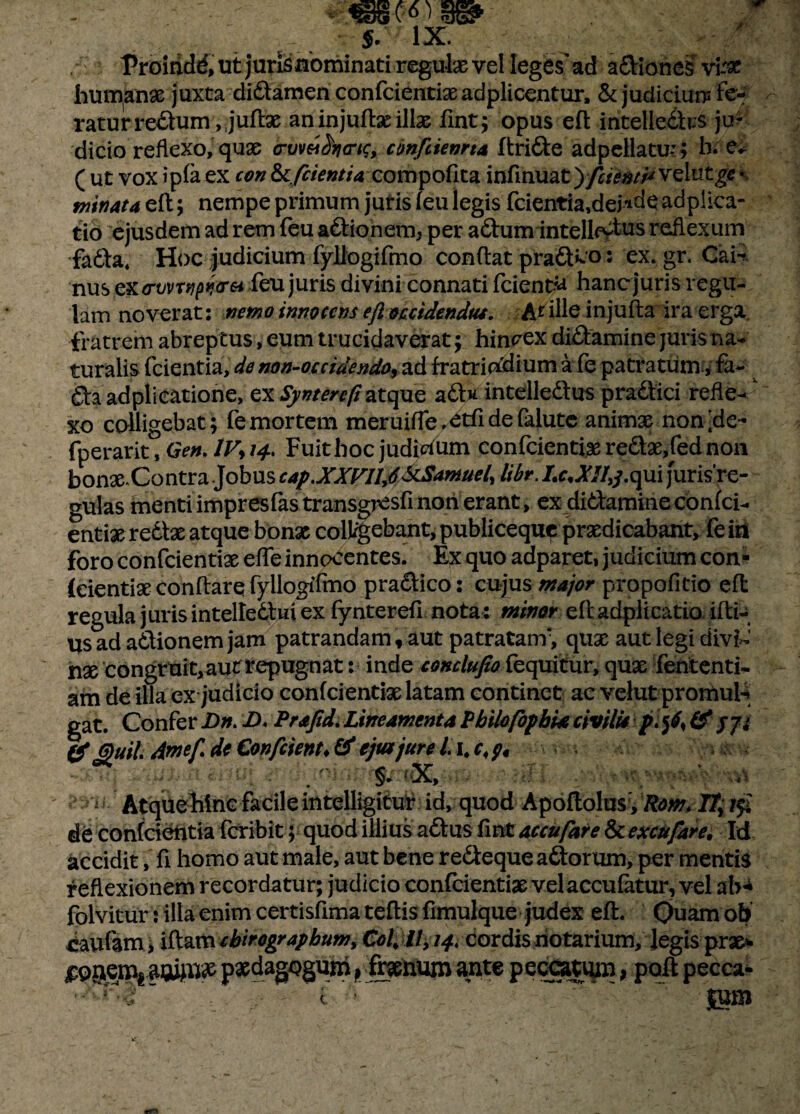 (6)
§. IX.
Proindè, ut juris nominati regulæ vel leges ad actiones vitæ
humanæ juxta dictamen conscientiæ adplicentur, & judicium fe-
ratur rectum, justæ an injustæ illæ sint; opus est intellectus ju-
dicio reflexo, quæ συνείδησις, conscientia stricte adpellatur; h. e.
(ut vox ipsa ex con & scientia composita insinuat) scientia velut ge-
minata est; nempe primum juris seu legis scientia, deinde adplica-
tio ejusdem ad rem seu actionem, per actum intellectus reflexum
facta. Hoc judicium syllogismo constat practico: ex. gr. Cai-
nus ex συντηρήσει seu juris divini connati scientia hanc juris regu-
lam noverat: nemo innocens est occidendus. At ille injusta ira erga
fratrem abreptus, eum trucidaverat; hinc ex dictamine juris na-
turalis scientia, de non-occidendo, ad fratricidium à se patratum, fa-
cta adplicatione, ex Synteresi atque actu intellectus practici refle-
xo colligebat; se mortem meruisse, etsi de salute animæ non de-
sperarit, Gen. IV, 14. Fuit hoc judicium conscientiæ rectæ, sed non
bonæ. Contra Jobus cap. XXVII, 6 & Samuel, libr. I. c. XII, 3. qui juris re-
gulas menti impressas transgressi non erant, ex dictamine consci-
entiæ rectæ atque bonæ colligebant, publiceque prædicabant, se in
foro conscientiæ esse innocentes. Ex quo adparet, judicium con-
scientiæ constare syllogismo practico: cujus major propositio est
regula juris intellectui ex synteresi nota: minor est adplicatio isti-
us ad actionem jam patrandam, aut patratam, quæ aut legi divi-
næ congruit, aut repugnat: inde conclusio sequitur, quæ sententi-
am de illa ex judicio conscientiæ latam continet ac velut promul-
gat. Confer Dn. D. Præsid. Lineamenta Philosophiæ civilis p. 56, & 57;
& Guil. Ames. de Conscient. & ejus jure l. 1. c. 9.
§. X.
Atque hinc facile intelligitur id, quod Apostolus, Rom. II, 15.
de conscientia scribit; quod illius actus sint accusare & excusare. Id
accidit, si homo aut male, aut bene recteque actorum, per mentis
reflexionem recordatur; judicio conscientiæ vel accusatur, vel ab-
solvitur: illa enim certissima testis simulque judex est. Quam ob
causam, istam chirographum, Col. II, 14. cordis notarium, legis præ-
conem, animæ pædagogum, frænum ante peccatum, post pecca-
tum